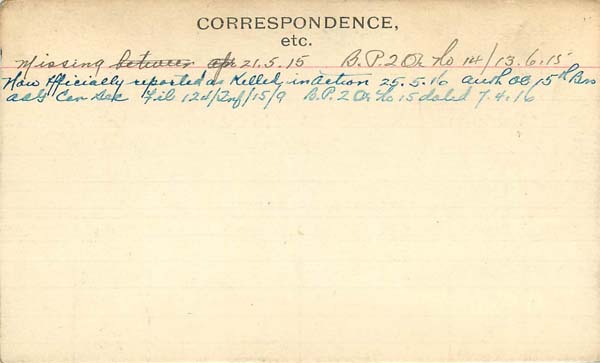 CORRESPONDENCE,
etc.
Missing between apr 21.5.15 B.P.2 Or. No 14/13.6.15
Now Officially reported as Killed in action 25.5.16 auth OC 15th Bn
aag Can Sec File 12d/Inf/15/9 B.P.2 Or No 15 dated 7.4.16